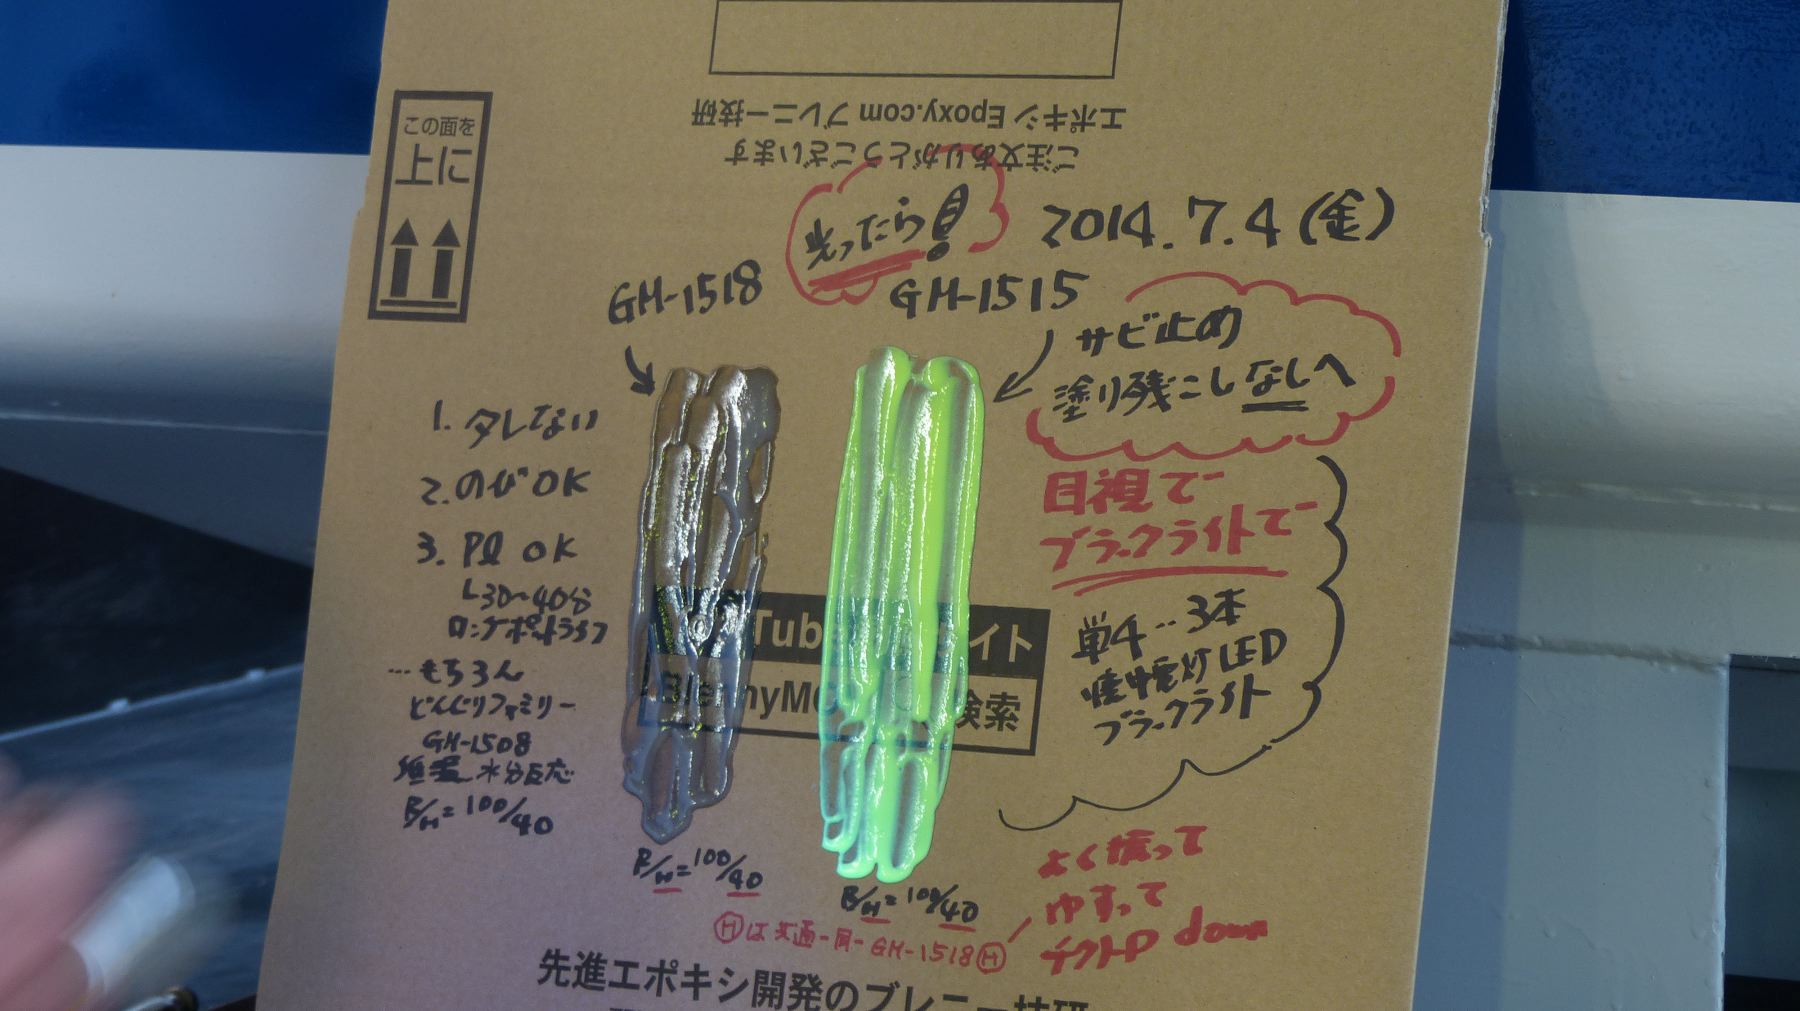 エポキシ Epoxy.com ブレニー技研
ご注文ありがとうございます
この面を
上に
光ったら!
2014.7.4(金)
GH-1518
GH-1515
サビ止め
塗り残こしなしへ
1. タレない
2. のび OK
3. Pl OK
30~40分
ロングポットライフ
目視で
ブラックライトで
単4…3本
懐中電灯LED
ブラックライト
Tub イト
nyM 検索
…もちろん
どんぐりファミリー
GH-1508
水分反応
B/H=100/40
B/H=100/40
B/H=100/40
Hは共通-同-GH-1518H
よく振って
ゆすって
チクトP down
先進エポキシ開発のブレニー技研